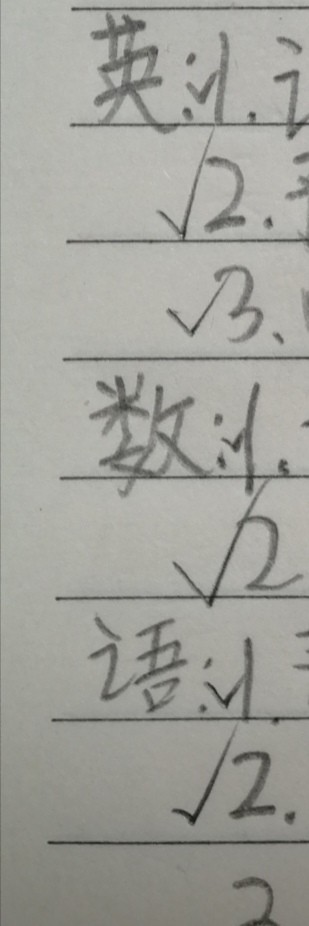 英:√1.
√2.
√3.
数:√1.
√2
语:√1.
√2.